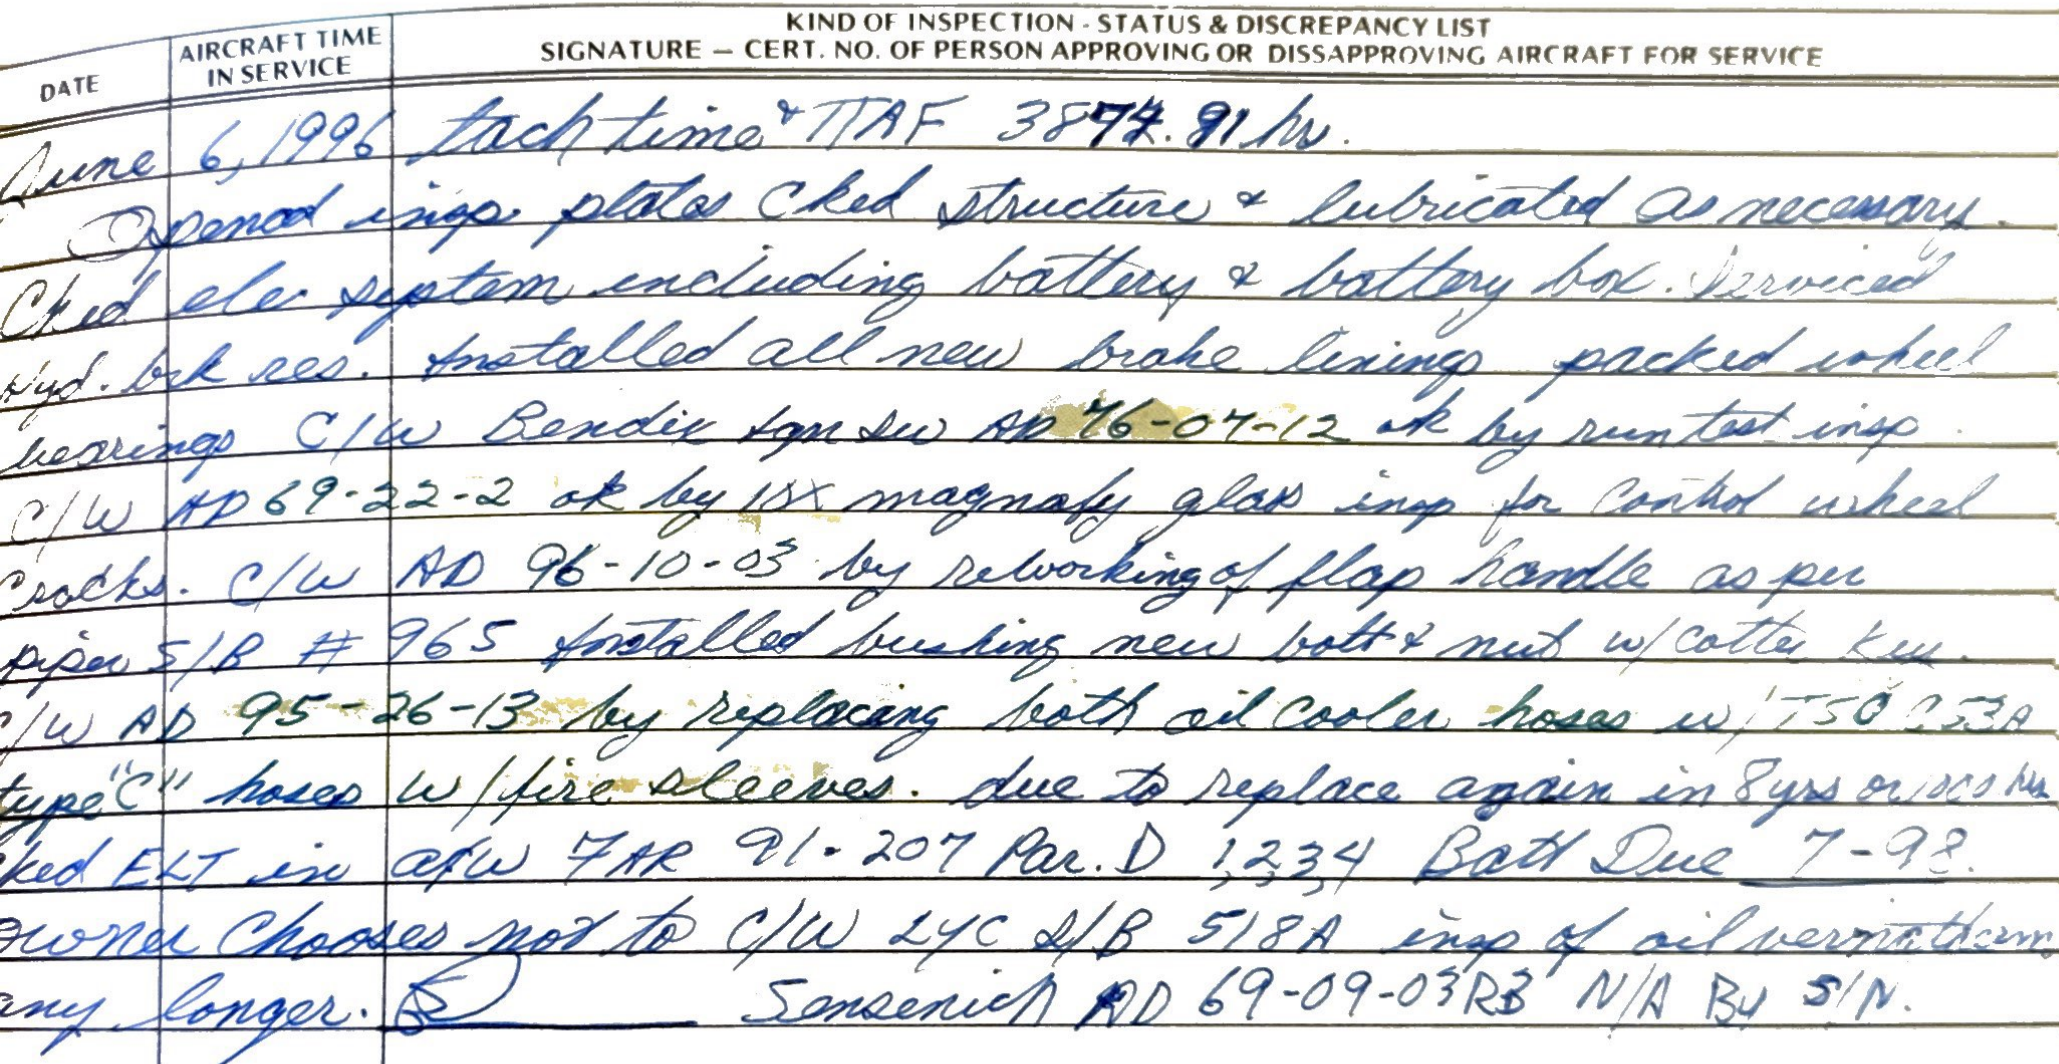 KIND OF INSPECTION - STATUS & DISCREPANCY LIST
SIGNATURE — CERT. NO. OF PERSON APPROVING OR DISSAPPROVING AIRCRAFT FOR SERVICE
DATE
AIRCRAFT TIME
IN SERVICE
June 6, 1996 tach time & TTAF 3874.91 hr.
Opened insp. plates Cked structure & lubricated as necessary.
Cked elec system including battery & battery box. Serviced
Hyd. brk res. Installed all new brake linings packed wheel
bearings C/W Bendix Ign Sw AD 76-07-12 ok by run test insp.
C/W AD 69-22-2 ok by 15X magnafy glass insp for Control wheel
Cracks. C/W AD 96-10-03 by reworking of flap handle as per
piper S/B # 965 Installed bushing new bolt & nut w/Cotter Key.
C/W AD 95-26-13 by replacing both oil Cooler hoses w/TSO C53A
type "C" hoses w/fire sleeves. due to replace again in 8yrs or 1000 hrs
ked ELT in a/w FAR 91-207 Par. D 1,2,3,4 Batt Due 7-98.
Owner Chooses not to C/W LYC S/B 518A insp of oil vernatherm
any longer. Sensenich AD 69-09-03R3 N/A By S/N.